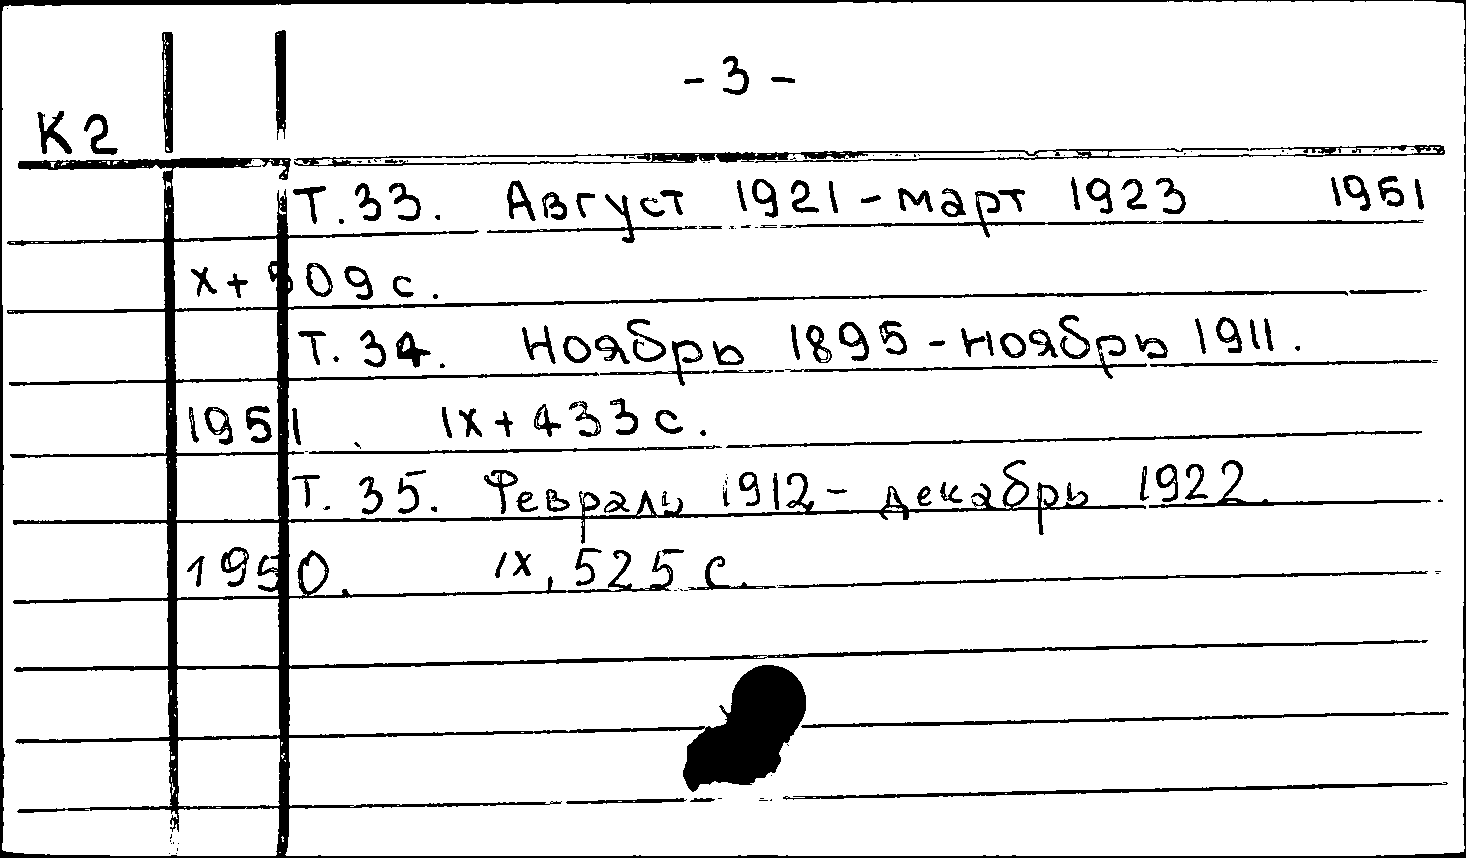 - 3 -
К2
Т. 33. Август 1921 - март 1923 1951
X + 509 с.
Т. 34. Ноябрь 1895 - ноябрь 1911.
1951. IX + 433 с.
Т. 35. Февраль 1912 - декабрь 1922.
1950. IX, 525 с.